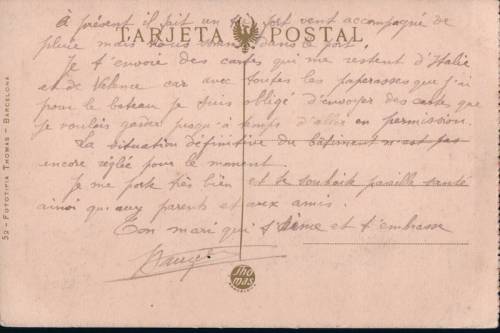 À présent il fait un fort vent accompagné de
pluie mais nous dans le port.
TARJETA POSTAL
Je t'envoie des cartes qui me restent d'Italie
et de Valence car avec toutes les paperasses que j'ai
pour le bateau je suis obligé d'envoyer des cartes que
je voulais garder jusqu'à temps d'aller en permission.
La situation définitive du bâtiment n'est pas
encore réglée pour le moment.
Je me porte très bien et te souhaite pareille santé
ainsi qu'aux parents et aux amis.
Ton mari qui t'aime et t'embrasse
52 - FOTOTIPIA THOMAS - BARCELONA
Thomas